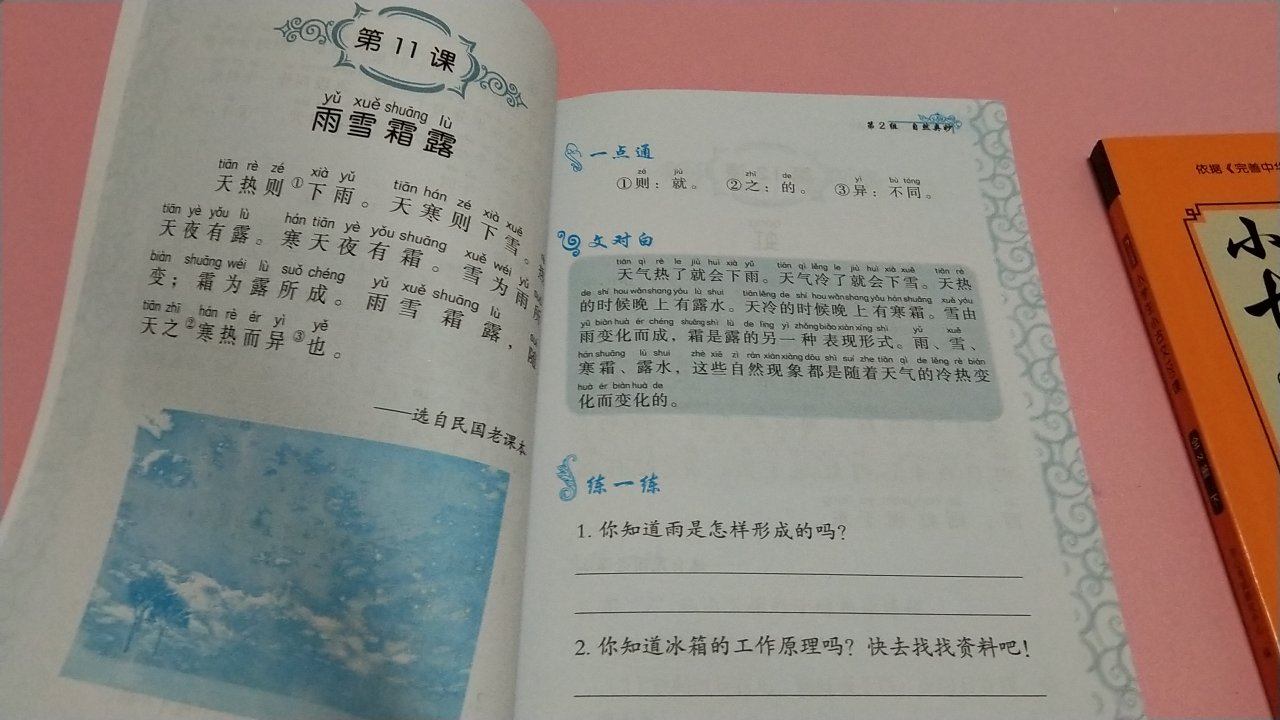 第 11 课
yǔ xuě shuāng lù
雨雪霜露
tiān rè zé xià yǔ tiān hán zé xià xuě
天热则①下雨。天寒则下雪。
tiān yè yǒu lù hán tiān yè yǒu shuāng xuě wéi yǔ
天夜有露。寒天夜有霜。雪为雨
biàn shuāng wéi lù suǒ chéng yǔ xuě shuāng lù
变；霜为露所成。雨雪霜露，随
tiān zhī hán rè ér yì yě
天之②寒热而异③也。
——选自民国老课本
第2组 自然奥妙
一点通
zé jiù zhī de yì bù tóng
①则：就。 ②之：的。 ③异：不同。
文对白
tiān qì rè le jiù huì xià yǔ tiān qì lěng le jiù huì xià xuě tiān rè
天气热了就会下雨。天气冷了就会下雪。天热
de shí hou wǎn shang yǒu lù shuǐ tiān lěng de shí hou wǎn shang yǒu hán shuāng xuě yóu
的时候晚上有露水。天冷的时候晚上有寒霜。雪由
yǔ biàn huà ér chéng shuāng shì lù de lìng yì zhǒng biǎo xiàn xíng shì yǔ xuě
雨变化而成，霜是露的另一种表现形式。雨、雪、
hán shuāng lù shuǐ zhè xiē zì rán xiàn xiàng dōu shì suí zhe tiān qì de lěng rè biàn
寒霜、露水，这些自然现象都是随着天气的冷热变
huà ér biàn huà de
化而变化的。
练一练
1. 你知道雨是怎样形成的吗？
2. 你知道冰箱的工作原理吗？快去找找资料吧！
依据《完善中华
小